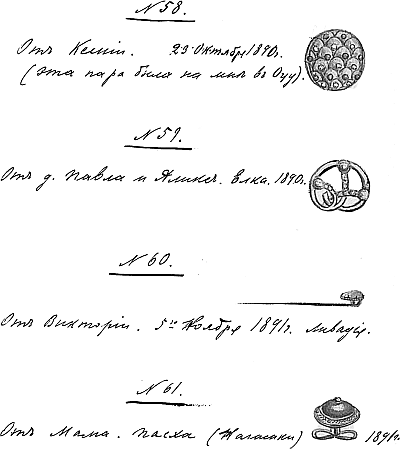 N 58.
Отъ Ксеніи. 23 Октября 1890г.
(эта пара была на мнѣ въ Оцу).
N 59.
Отъ д. Павла и Аликсъ. Елка. 1890г.
N 60.
Отъ Викторіи. 5го Ноября 1891г. Ливадія.
N 61.
Отъ Мама. Пасха (Нагасаки) 1891г.